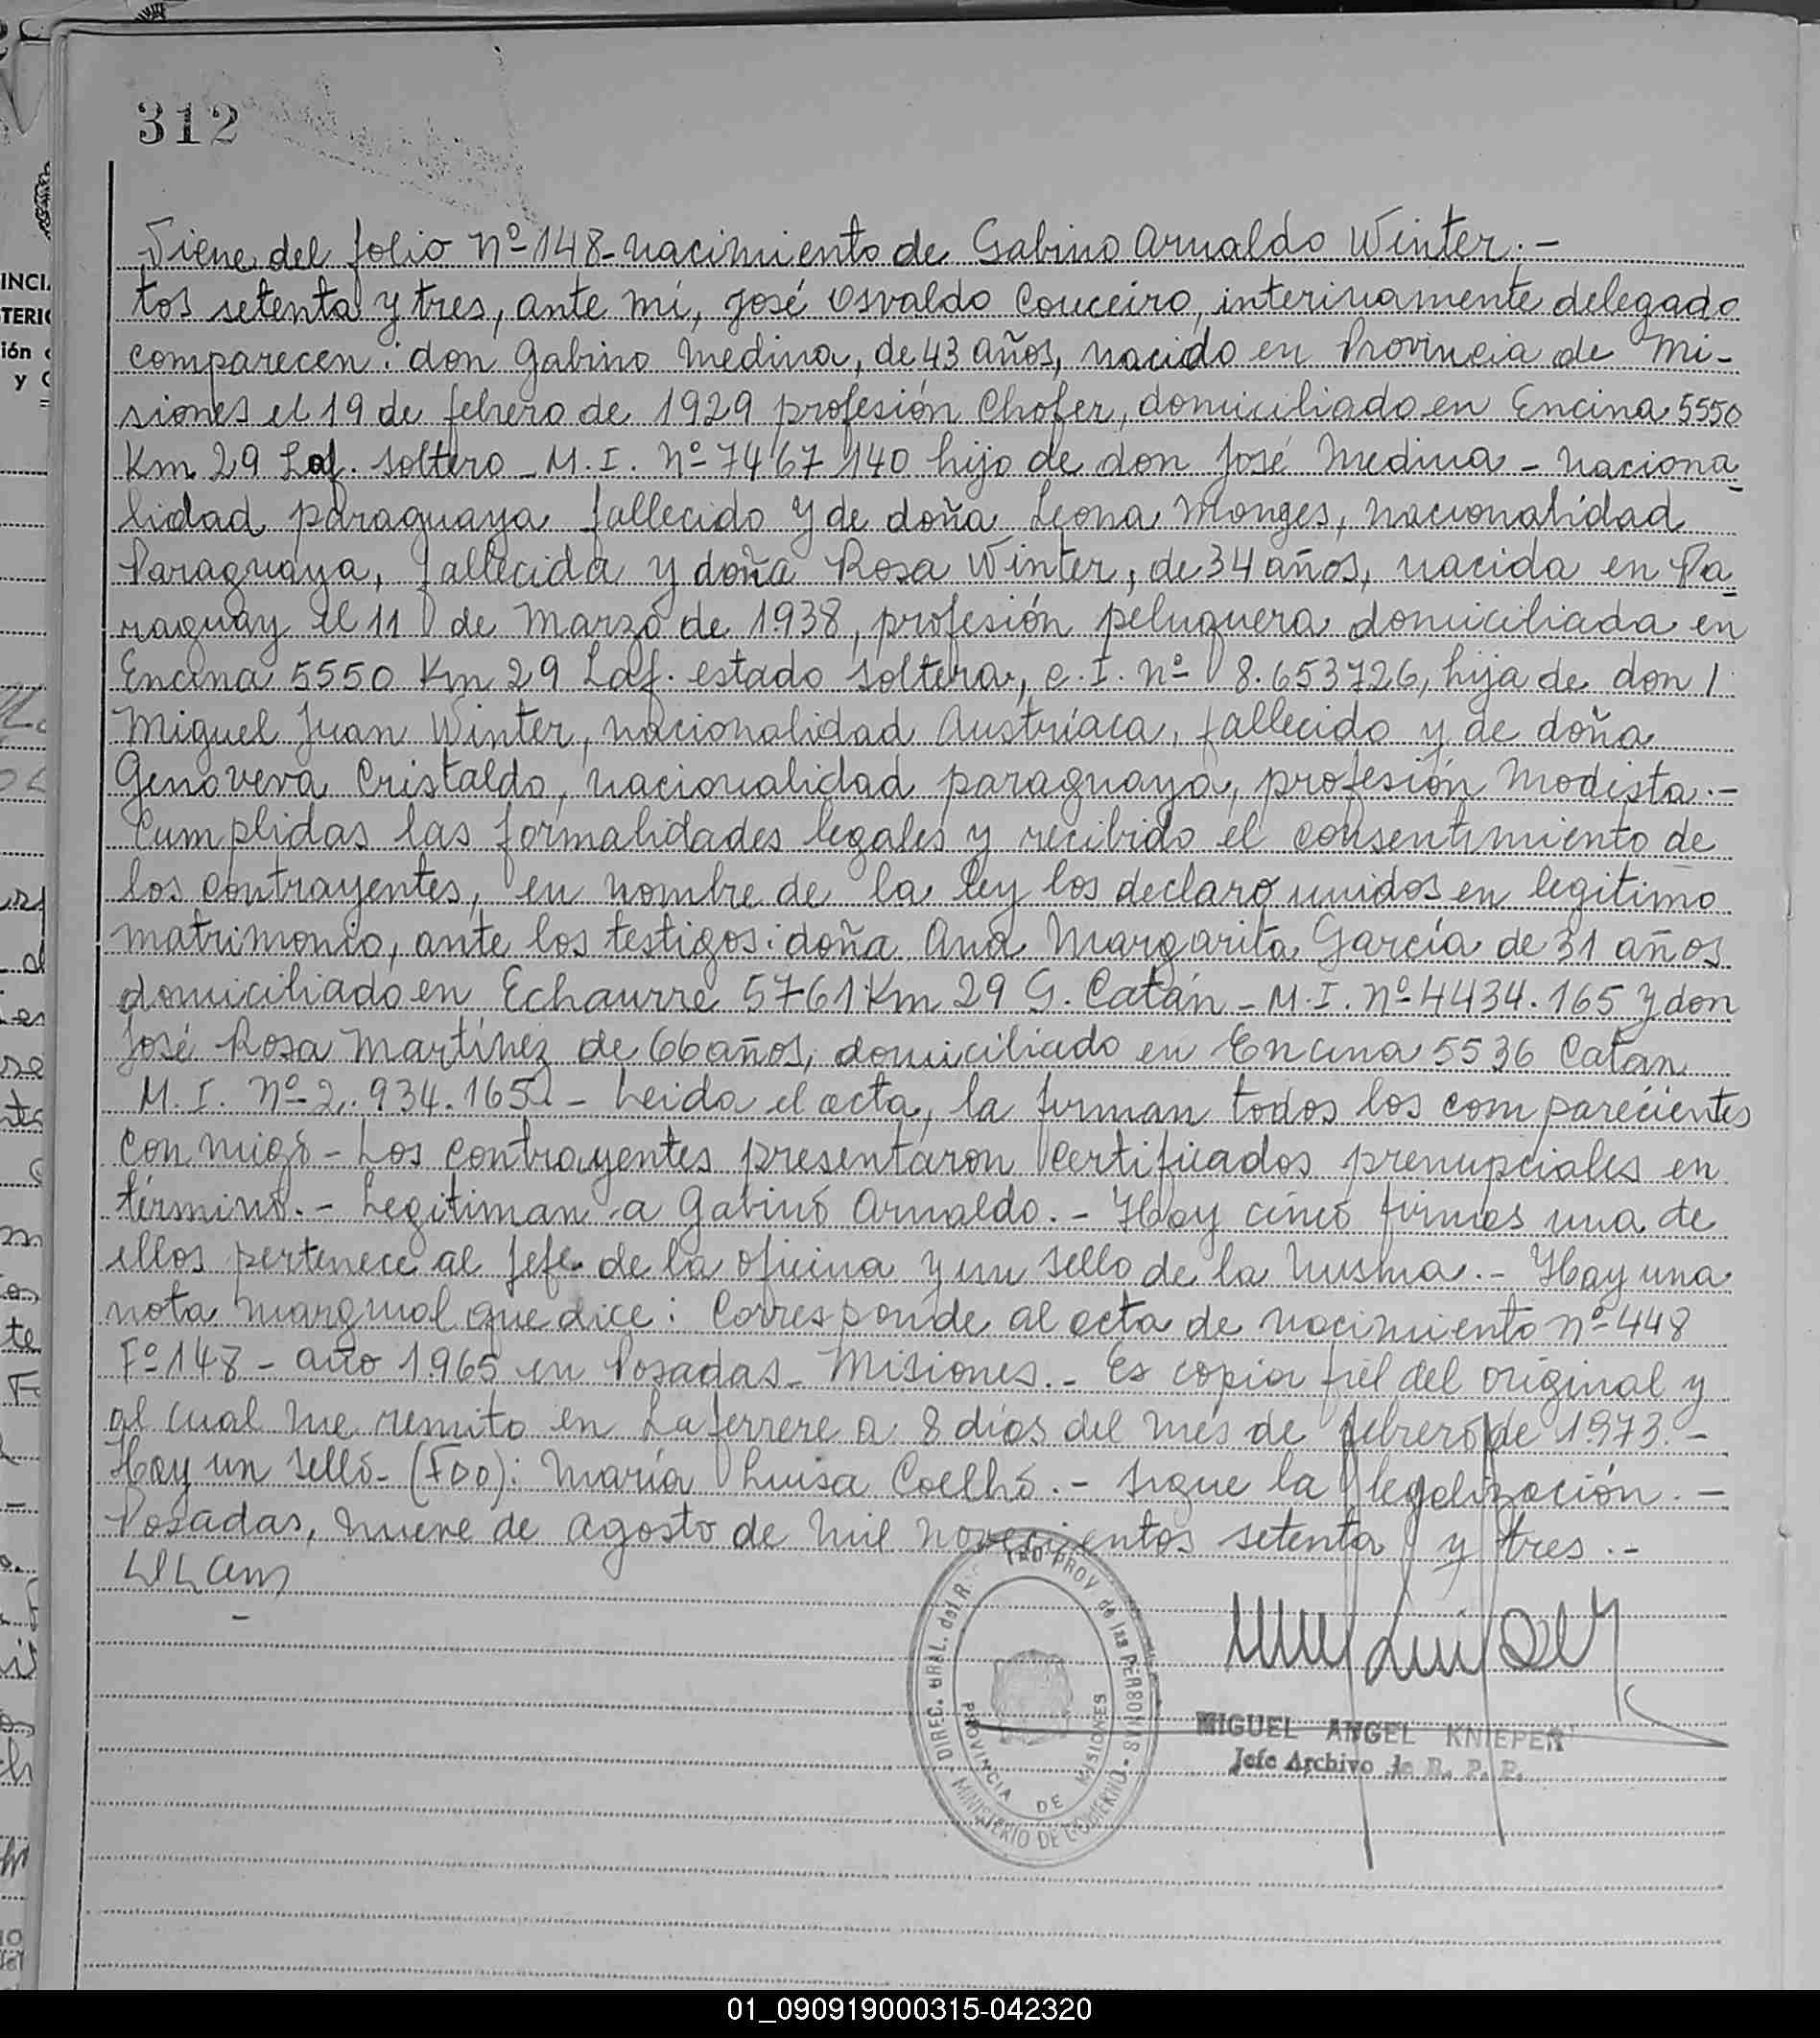 312
Viene del folio Nº 148-nacimiento de Gabino Arnaldo Winter.-
tos setenta y tres, ante mí, José Osvaldo Couceiro, interinamente delegado
comparecen: don Gabino Medina, de 43 años, nacido en Provincia de Mi-
siones el 19 de febrero de 1929 profesión Chofer, domiciliado en Encina 5550
Km 29 Laf. soltero - M.I. Nº 7467140 hijo de don José Medina - naciona
lidad paraguaya fallecido y de doña Leona Monges, nacionalidad
Paraguaya, fallecida y doña Rosa Winter, de 34 años, nacida en Pa
raguay el 11 de Marzo de 1938, profesión peluquera domiciliada en
Encina 5550 Km 29 Laf. estado soltera, C.I. Nº 8.653726, hija de don /
Miguel Juan Winter, nacionalidad Austríaca, fallecido y de doña
Genoveva Cristaldo, nacionalidad paraguaya, profesión Modista.-
Cumplidas las formalidades legales y recibido el consentimiento de
los contrayentes, en nombre de la ley los declaro unidos en legitimo
matrimonio, ante los testigos: doña Ana Margarita García de 31 años
domiciliado en Echaurre 5761 Km 29 G. Catán - M.I. Nº 4434.165 y don
José Rosa Martínez de 66 años, domiciliado en Encina 5536 Catan
M.I. Nº 2.934.165 - Leida el acta, la firman todos los comparecientes
conmigo - Los contrayentes presentaron certificados prenupciales en
término.- Legitiman a Gabino Arnaldo.- Hay cinco firmas una de
ellos pertenece al Jefe de la oficina y un sello de la misma.- Hay una
nota marginal que dice: Corresponde al acta de nacimiento nº 448
Fº 148 - año 1.965 en Posadas - Misiones.- Es copia fiel del original y
al cual me remito en Laferrere a 8 días del mes de febrero de 1973.-
Hay un sello - (FDO): María Luisa Coelho.- sigue la legalización.-
Posadas, nueve de agosto de mil novecientos setenta y tres.-
DIREC. GRAL. del R. PROV de las PERSONAS
MINISTERIO DE GOBIERNO
PROVINCIA DE MISIONES
MIGUEL ANGEL KNIEPER
Jefe Archivo de R. P. P.
01_090919000315-042320